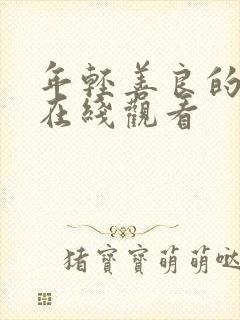 年輕善良的
在綫觀看
猪寶寶萌萌噠